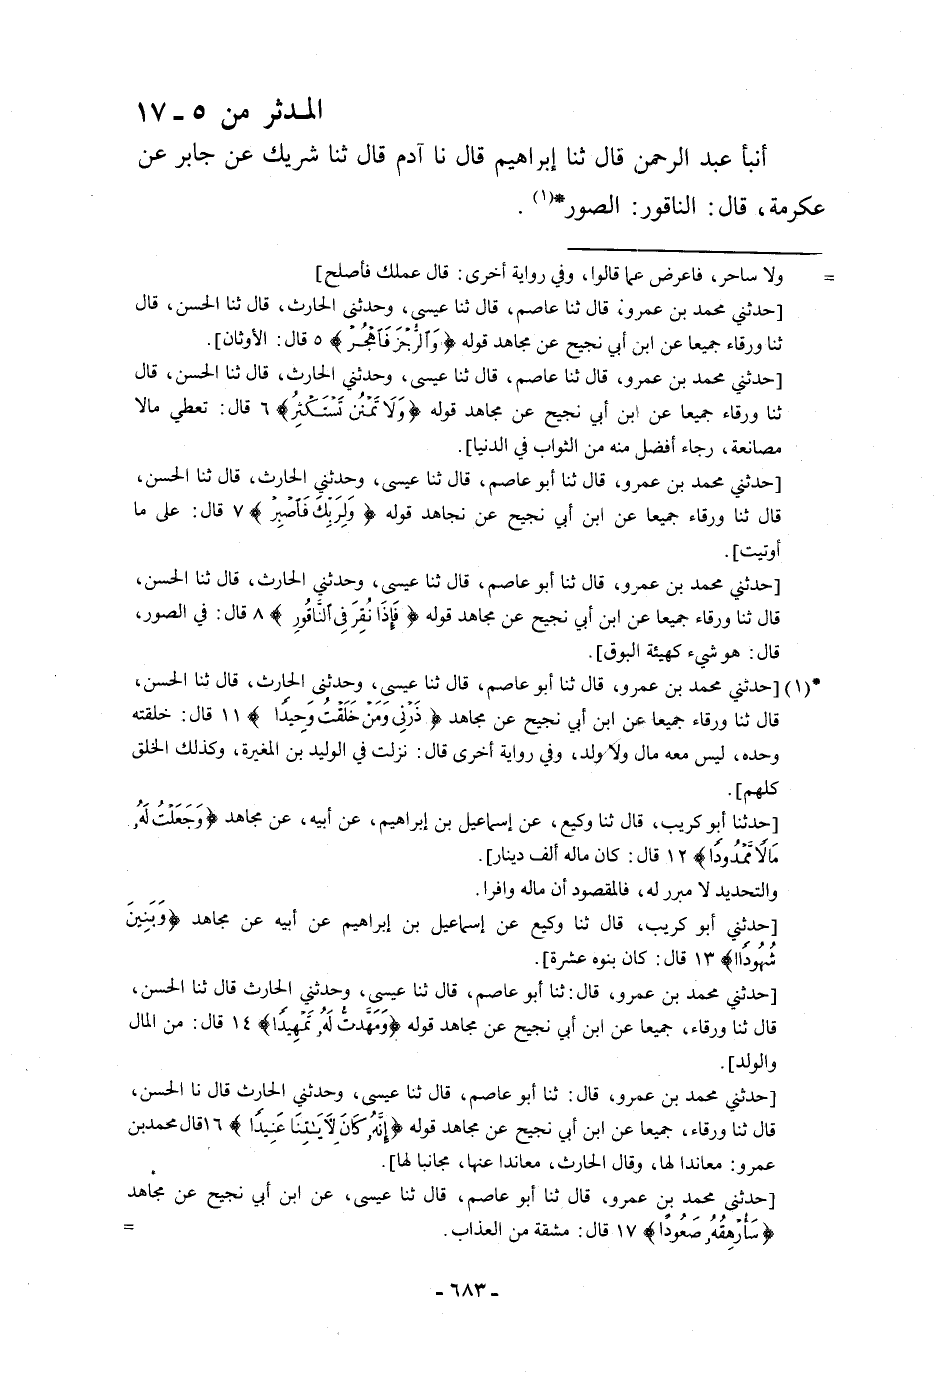 المدثر من ٥ - ١٧
أنبأ عبد الرحمن قال ثنا إبراهيم قال نا آدم قال ثنا شريك عن جابر عن
عكرمة، قال: الناقور: الصور*(١) .
= ولا ساحر، فاعرض عما قالوا، وفي رواية أخرى: قال عملك فأصلح]
[حدثني محمد بن عمرو، قال ثنا عاصم، قال ثنا عيسى، وحدثني الحارث، قال ثنا الحسن، قال
ثنا ورقاء جميعا عن ابن أبي نجيح عن مجاهد قوله ﴿وَٱلرُّجْزَ فَٱهْجُرْ﴾ ٥ قال: الأوثان].
[حدثني محمد بن عمرو، قال ثنا عاصم، قال ثنا عيسى، وحدثني الحارث، قال ثنا الحسن، قال
ثنا ورقاء جميعا عن ابن أبي نجيح عن مجاهد قوله ﴿وَلَا تَمْنُن تَسْتَكْثِرُ﴾ ٦ قال: تعطي مالا
مصانعة، رجاء أفضل منه من الثواب في الدنيا].
[حدثني محمد بن عمرو، قال ثنا أبو عاصم، قال ثنا عيسى، وحدثني الحارث، قال ثنا الحسن،
قال ثنا ورقاء جميعا عن ابن أبي نجيح عن نجاهد قوله ﴿ وَلِرَبِّكَ فَٱصْبِرْ ﴾ ٧ قال: على ما
أوتيت].
[حدثني محمد بن عمرو، قال ثنا أبو عاصم، قال ثنا عيسى، وحدثني الحارث، قال ثنا الحسن،
قال ثنا ورقاء جميعا عن ابن أبي نجيح عن مجاهد قوله ﴿ فَإِذَا نُقِرَ فِى ٱلنَّاقُورِ ﴾ ٨ قال: في الصور،
قال: هو شيء كهيئة البوق].
*(١) [حدثني محمد بن عمرو، قال ثنا أبو عاصم، قال ثنا عيسى، وحدثني الحارث، قال ثنا الحسن،
قال ثنا ورقاء جميعا عن ابن أبي نجيح عن مجاهد ﴿ ذَرْنِى وَمَنْ خَلَقْتُ وَحِيدًا ﴾ ١١ قال: خلقته
وحده، ليس معه مال ولا ولد، وفي رواية أخرى قال: نزلت في الوليد بن المغيرة، وكذلك الخلق
كلهم].
[حدثنا أبو كريب، قال ثنا وكيع، عن إسماعيل بن إبراهيم، عن أبيه، عن مجاهد ﴿وَجَعَلْتُ لَهُۥ
مَالًا مَّمْدُودًا﴾ ١٢ قال: كان ماله ألف دينار].
والتحديد لا مبرر له، فالمقصود أن ماله وافرا.
[حدثني أبو كريب، قال ثنا وكيع عن إسماعيل بن إبراهيم عن أبيه عن مجاهد ﴿وَبَنِينَ
شُهُودًا﴾ ١٣ قال: كان بنوه عشرة].
[حدثني محمد بن عمرو، قال: ثنا أبو عاصم، قال ثنا عيسى، وحدثني الحارث قال ثنا الحسن،
قال ثنا ورقاء، جميعا عن ابن أبي نجيح عن مجاهد قوله ﴿وَمَهَّدتُّ لَهُۥ تَمْهِيدًا﴾ ١٤ قال: من المال
والولد].
[حدثني محمد بن عمرو، قال: ثنا أبو عاصم، قال ثنا عيسى، وحدثني الحارث قال نا الحسن،
قال ثنا ورقاء، جميعا عن ابن أبي نجيح عن مجاهد قوله ﴿إِنَّهُۥ كَانَ لِآيَٰتِنَا عَنِيدًا ﴾ ١٦ قال محمد بن
عمرو: معاندا لها، وقال الحارث، معاندا عنها، مجانبا لها].
[حدثني محمد بن عمرو، قال ثنا أبو عاصم، قال ثنا عيسى، عن ابن أبي نجيح عن مجاهد
﴿سَأُرْهِقُهُۥ صَعُودًا﴾ ١٧ قال: مشقة من العذاب. =
- ٦٨٣ -